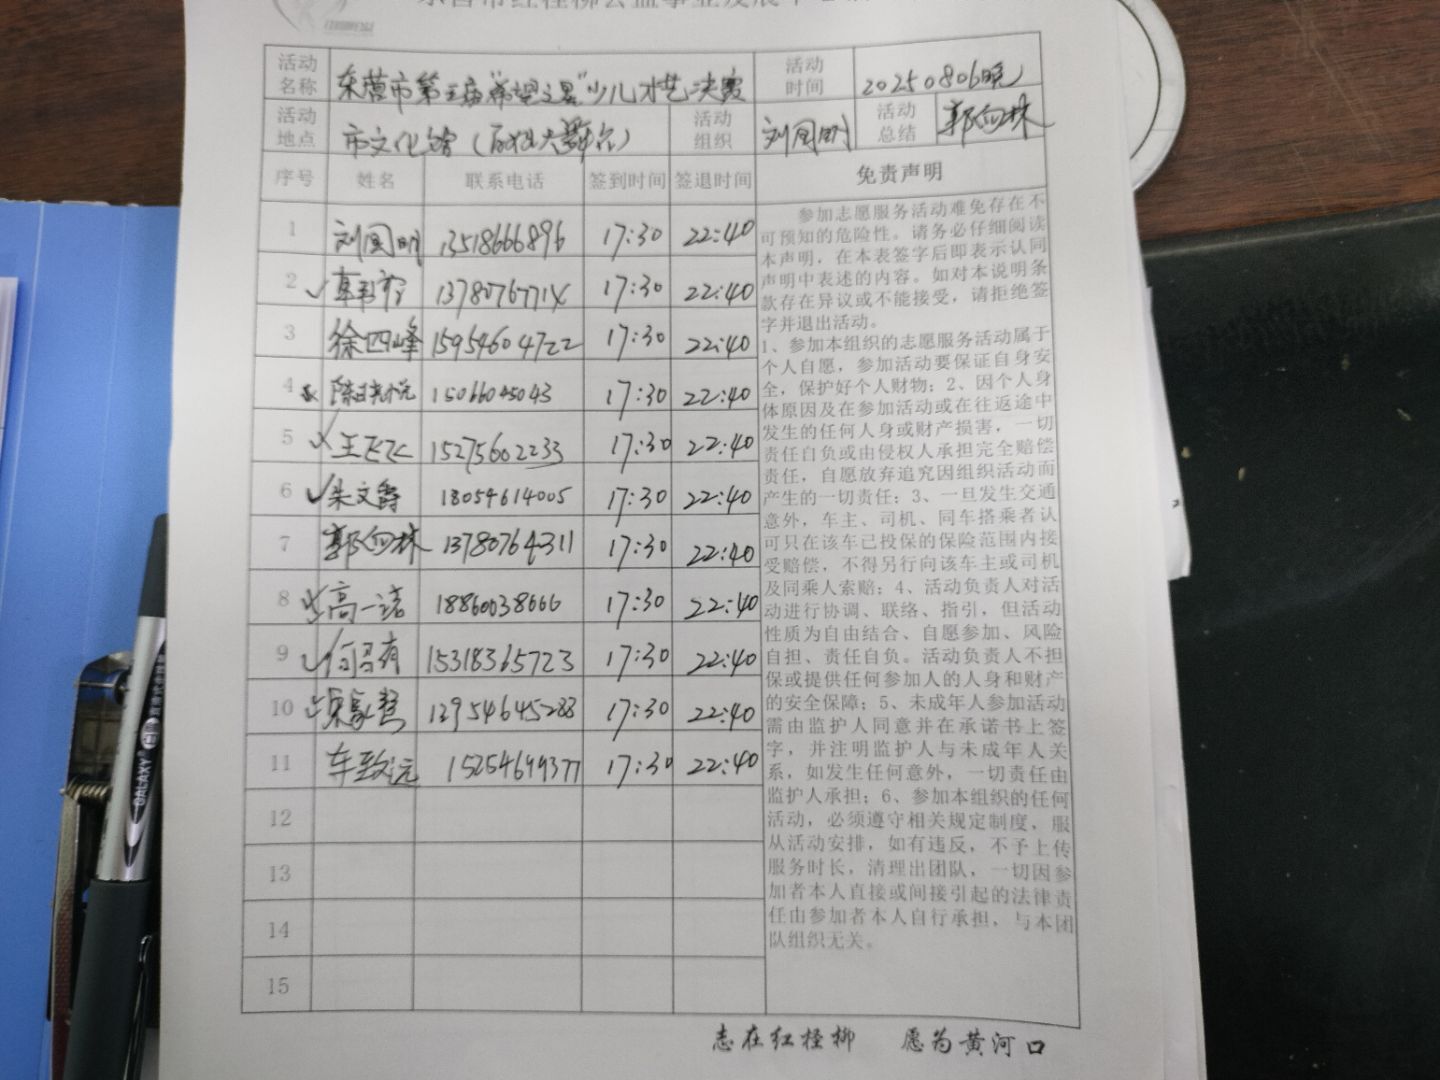 活动名称 东营市第三届"希望之星"少儿才艺决赛 活动时间 20250806晚
活动地点 市文化馆（百姓大舞台） 活动组织 刘国明 活动总结 郭向林
序号 姓名 联系电话 签到时间 签退时间 免责声明
1 刘国明 13518666896 17:30 22:40
2 1378076771X 17:30 22:40
3 徐四峰 15954604722 17:30 22:40
4 15066045043 17:30 22:40
5 王飞飞 15275602233 17:30 22:40
6 朱文爵 18054614005 17:30 22:40
7 郭向林 13780764311 17:30 22:40
8 高一诺 18860038666 17:30 22:40
9 15318365723 17:30 22:40
10 13954645288 17:30 22:40
11 车致远 15254649377 17:30 22:40
12
13
14
15
参加志愿服务活动难免存在不
可预知的危险性。请务必仔细阅读
本声明，在本表签字后即表示认同
声明中表述的内容。如对本说明条
款存在异议或不能接受，请拒绝签
字并退出活动。
1、参加本组织的志愿服务活动属于
个人自愿，参加活动要保证自身安
全，保护好个人财物；2、因个人身
体原因及在参加活动或在往返途中
发生的任何人身或财产损害，一切
责任自负或由侵权人承担完全赔偿
责任，自愿放弃追究因组织活动而
产生的一切责任；3、一旦发生交通
意外，车主、司机、同车搭乘者认
可只在该车已投保的保险范围内接
受赔偿，不得另行向该车主或司机
及同乘人索赔；4、活动负责人对活
动进行协调、联络、指引，但活动
性质为自由结合、自愿参加、风险
自担、责任自负。活动负责人不担
保或提供任何参加人的人身和财产
的安全保障；5、未成年人参加活动
需由监护人同意并在承诺书上签
字，并注明监护人与未成年人关
系，如发生任何意外，一切责任由
监护人承担；6、参加本组织的任何
活动，必须遵守相关规定制度，服
从活动安排，如有违反，不予上传
服务时长，清理出团队，一切因参
加者本人直接或间接引起的法律责
任由参加者本人自行承担，与本团
队组织无关。
志在红柽柳 愿为黄河口
GALAXY